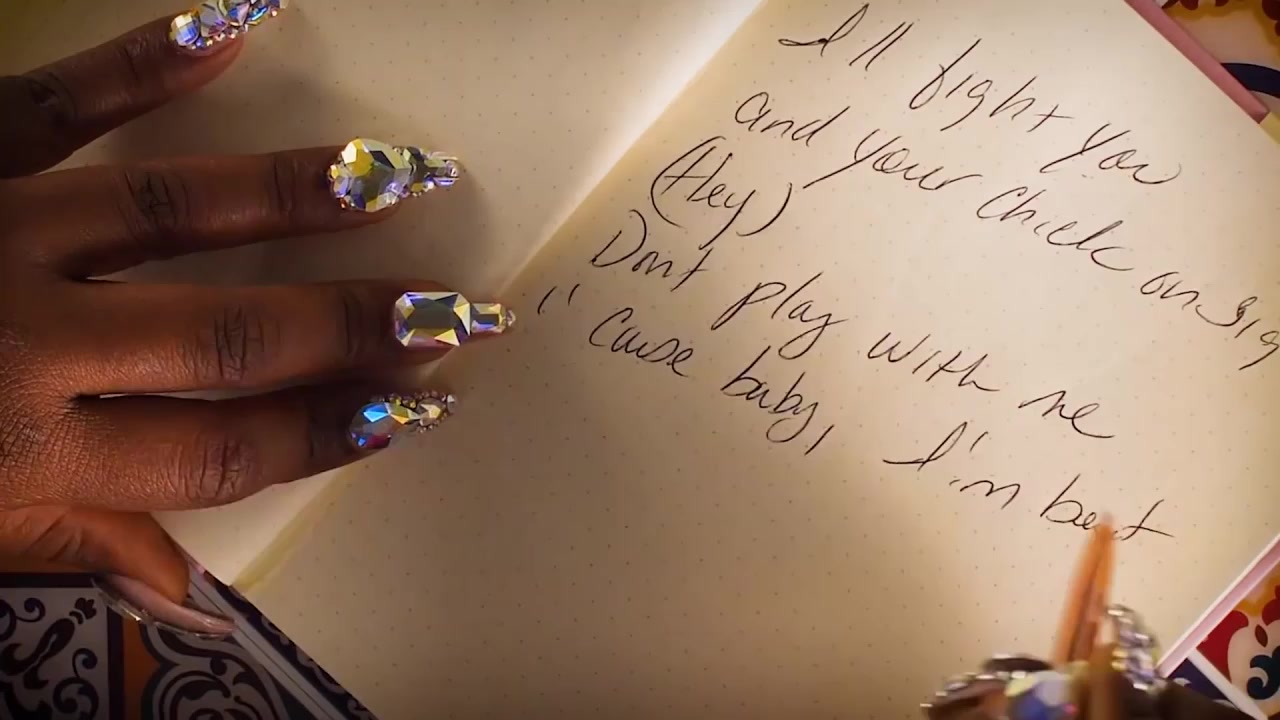 I'll fight you
and your chick on sig
(Hey)
Dont play with me
"cause baby, I'm bent